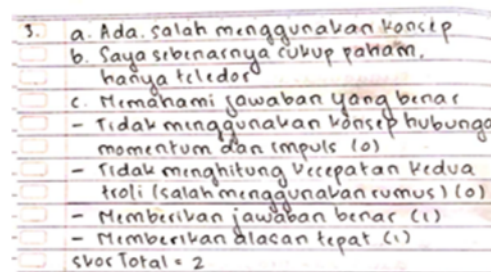 3. a. Ada. Salah menggunakan konsep
b. Saya sebenarnya cukup paham,
hanya teledor
c. Memahami jawaban yang benar
- Tidak menggunakan konsep hubunga
momentum dan impuls (0)
- Tidak menghitung kecepatan kedua
troli (salah menggunakan rumus) (0)
- Memberikan jawaban benar (1)
- Memberikan alasan tepat (1)
Skor Total = 2